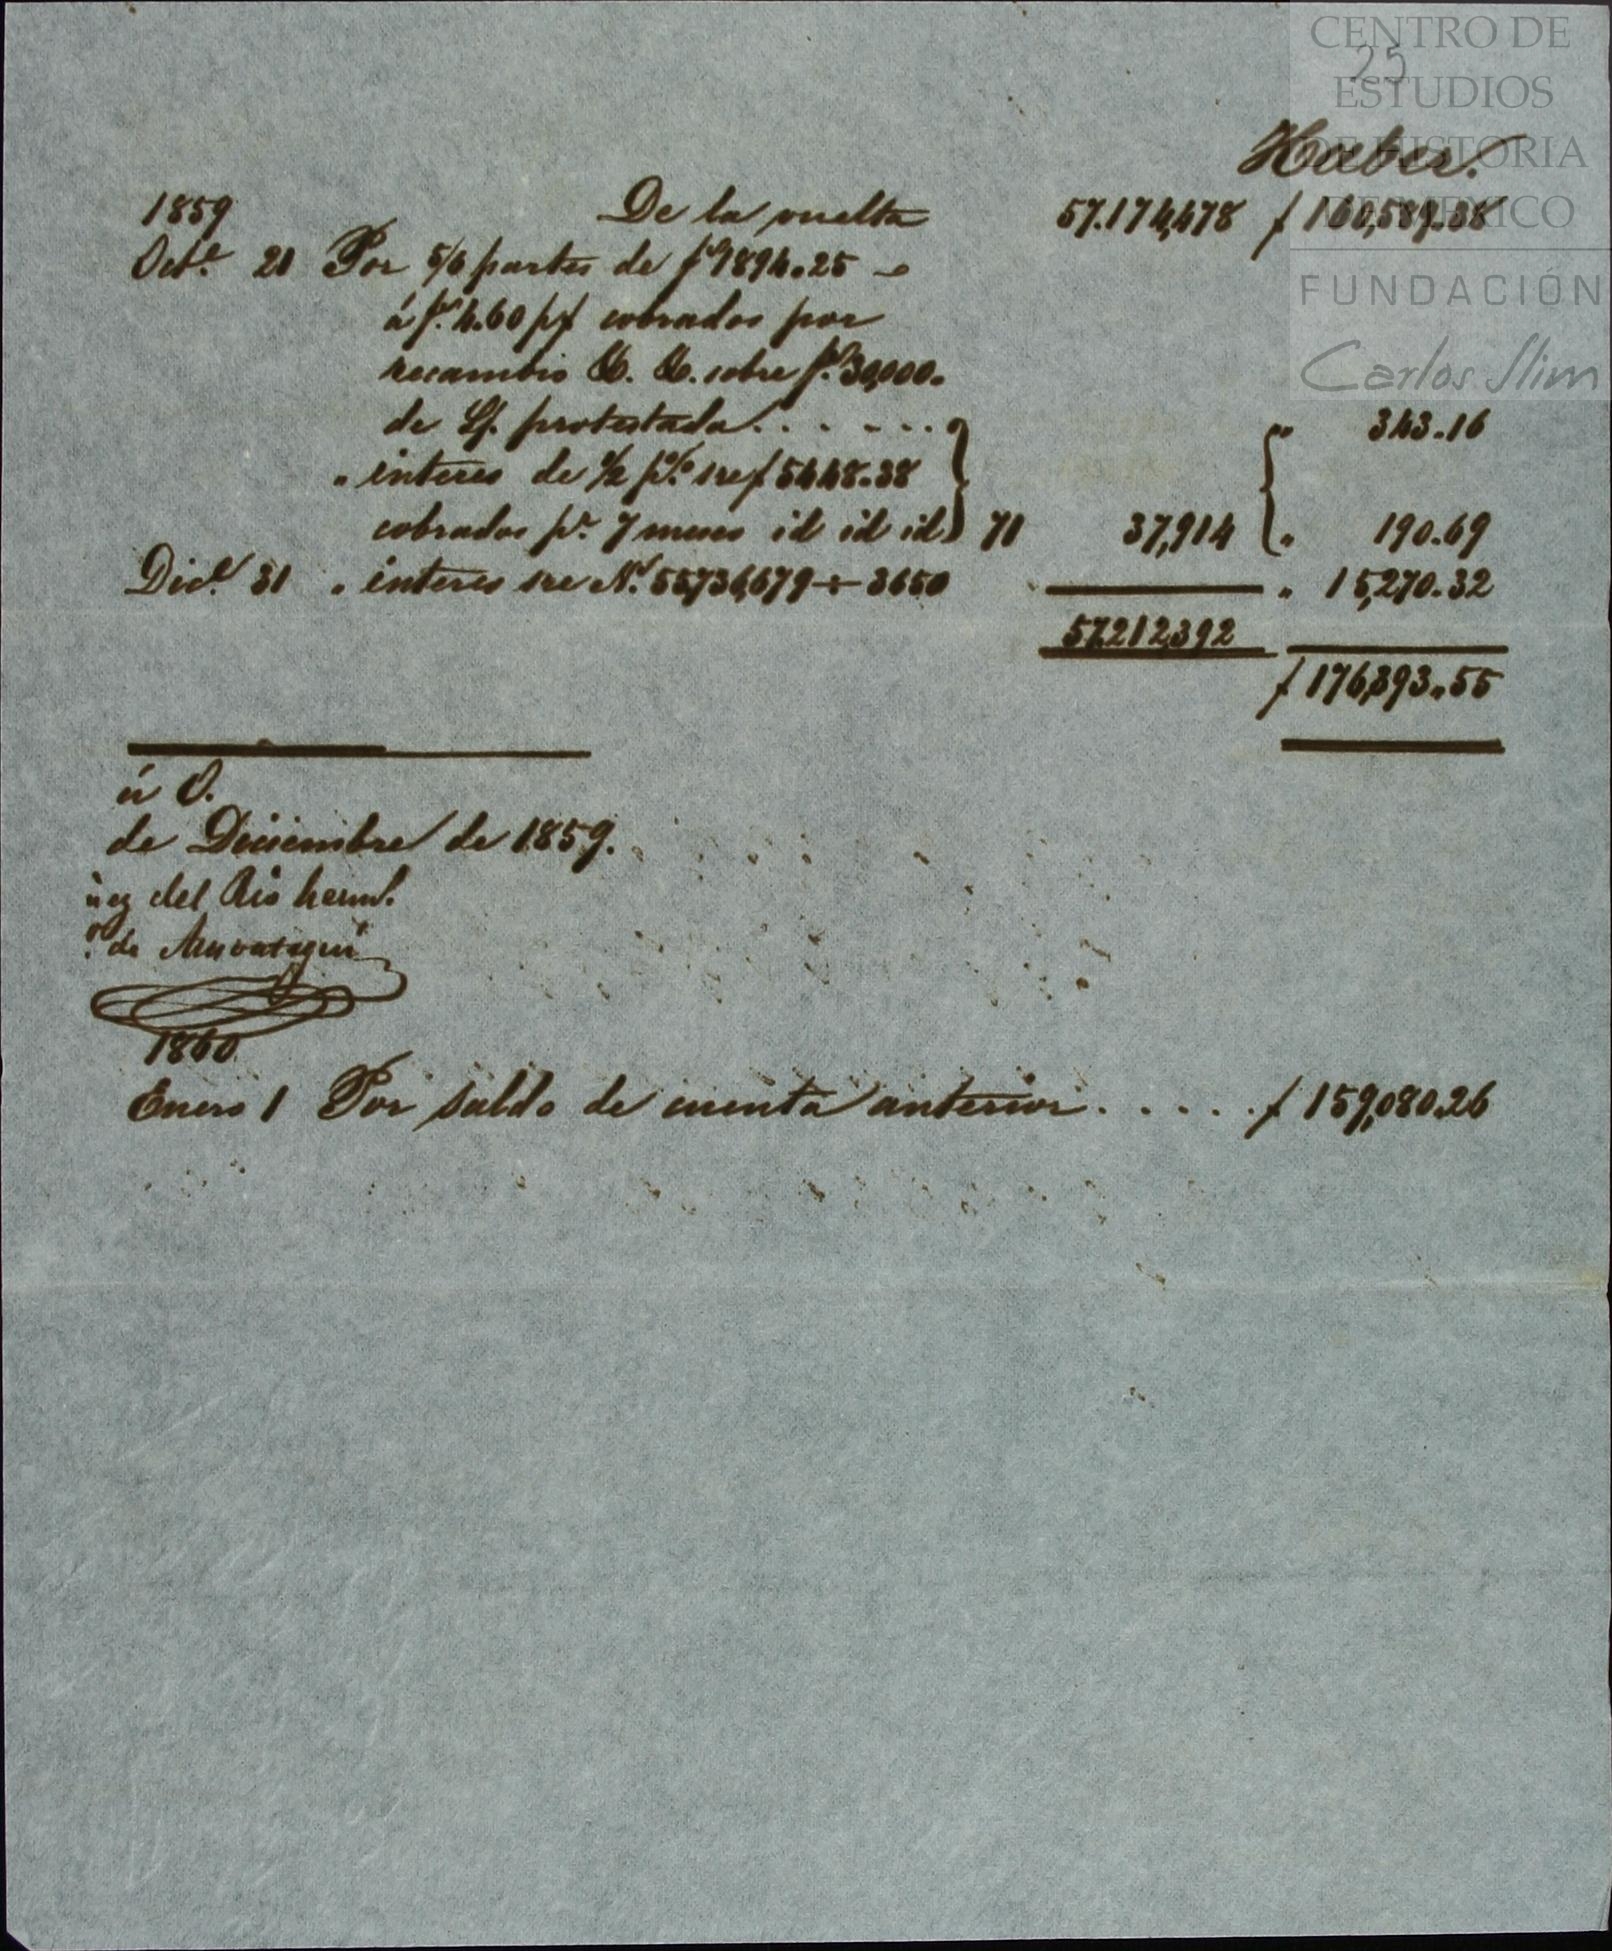 CENTRO DE
ESTUDIOS
DE HISTORIA
DE MEXICO
FUNDACIÓN
Carlos Slim
25
Haber.
1859 De la vuelta 57.174,478 f 160,589.38
Octe. 21 Por 5/6 partes de f 9894.25
á f. 4.60 pf cobrados por
recambio &. &. sobre f. 30,000.
de Lf. protestada....... „ 343.16
„ interes de 1/2 p% sre f 5448.38
cobrados pr. 7 meses id id id 71 37,914 „ 190.69
Dice. 31 „ interes sre No. 55,736,679 ÷ 3650 „ 15,270.32
57,212,392
f 176,393.55
ú O.
de Diciembre de 1859.
ñez del Rio herms.
de
1860
Enero 1 Por saldo de cuenta anterior...... f 159,080.26